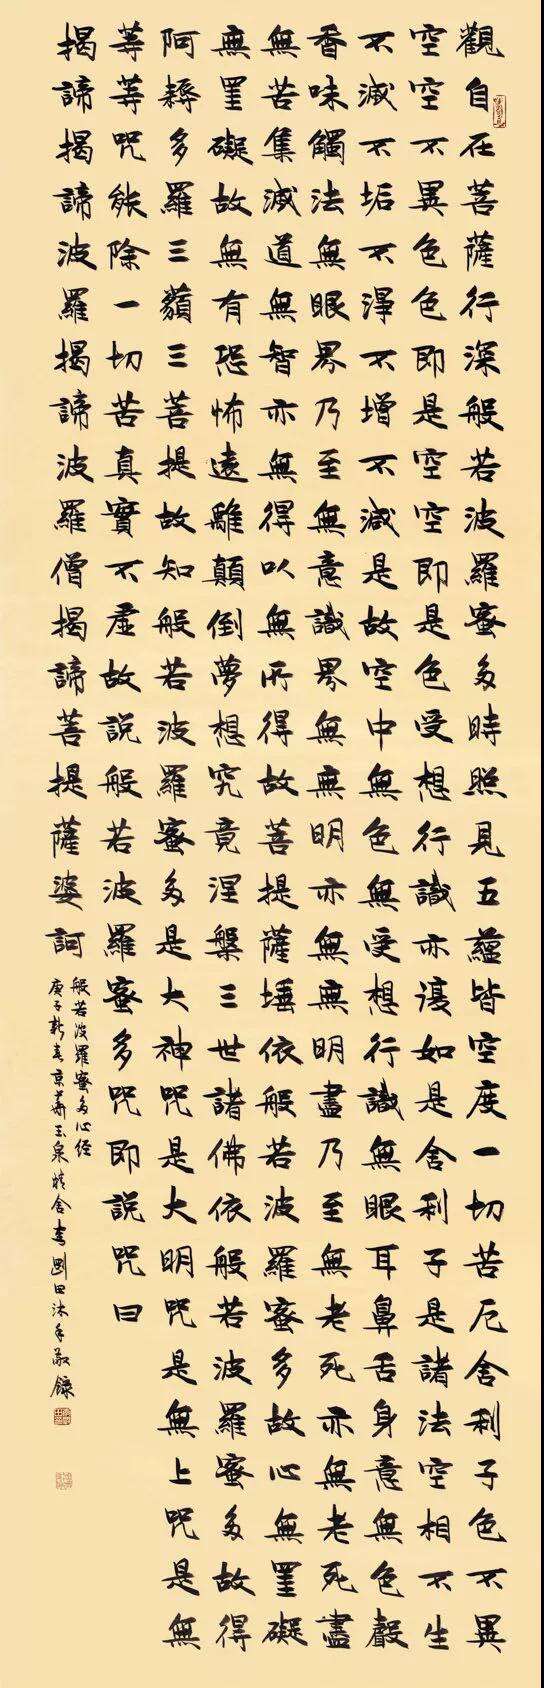 觀自在菩薩行深般若波羅蜜多時照見五蘊皆空度一切苦厄舍利子色不異
空空不異色色即是空空即是色受想行識亦復如是舍利子是諸法空相不生
不滅不垢不淨不增不減是故空中無色無受想行識無眼耳鼻舌身意無色聲
香味觸法無眼界乃至無意識界無無明亦無無明盡乃至無老死亦無老死盡
無苦集滅道無智亦無得以無所得故菩提薩埵依般若波羅蜜多故心無罣礙
無罣礙故無有恐怖遠離顛倒夢想究竟涅槃三世諸佛依般若波羅蜜多故得
阿耨多羅三藐三菩提故知般若波羅蜜多是大神咒是大明咒是無上咒是無
等等咒能除一切苦真實不虛故說般若波羅蜜多咒即說咒曰
揭諦揭諦波羅揭諦波羅僧揭諦菩提薩婆訶
般若波羅蜜多心经
庚子新春京華玉泉精舍李剛田沐手敬錄